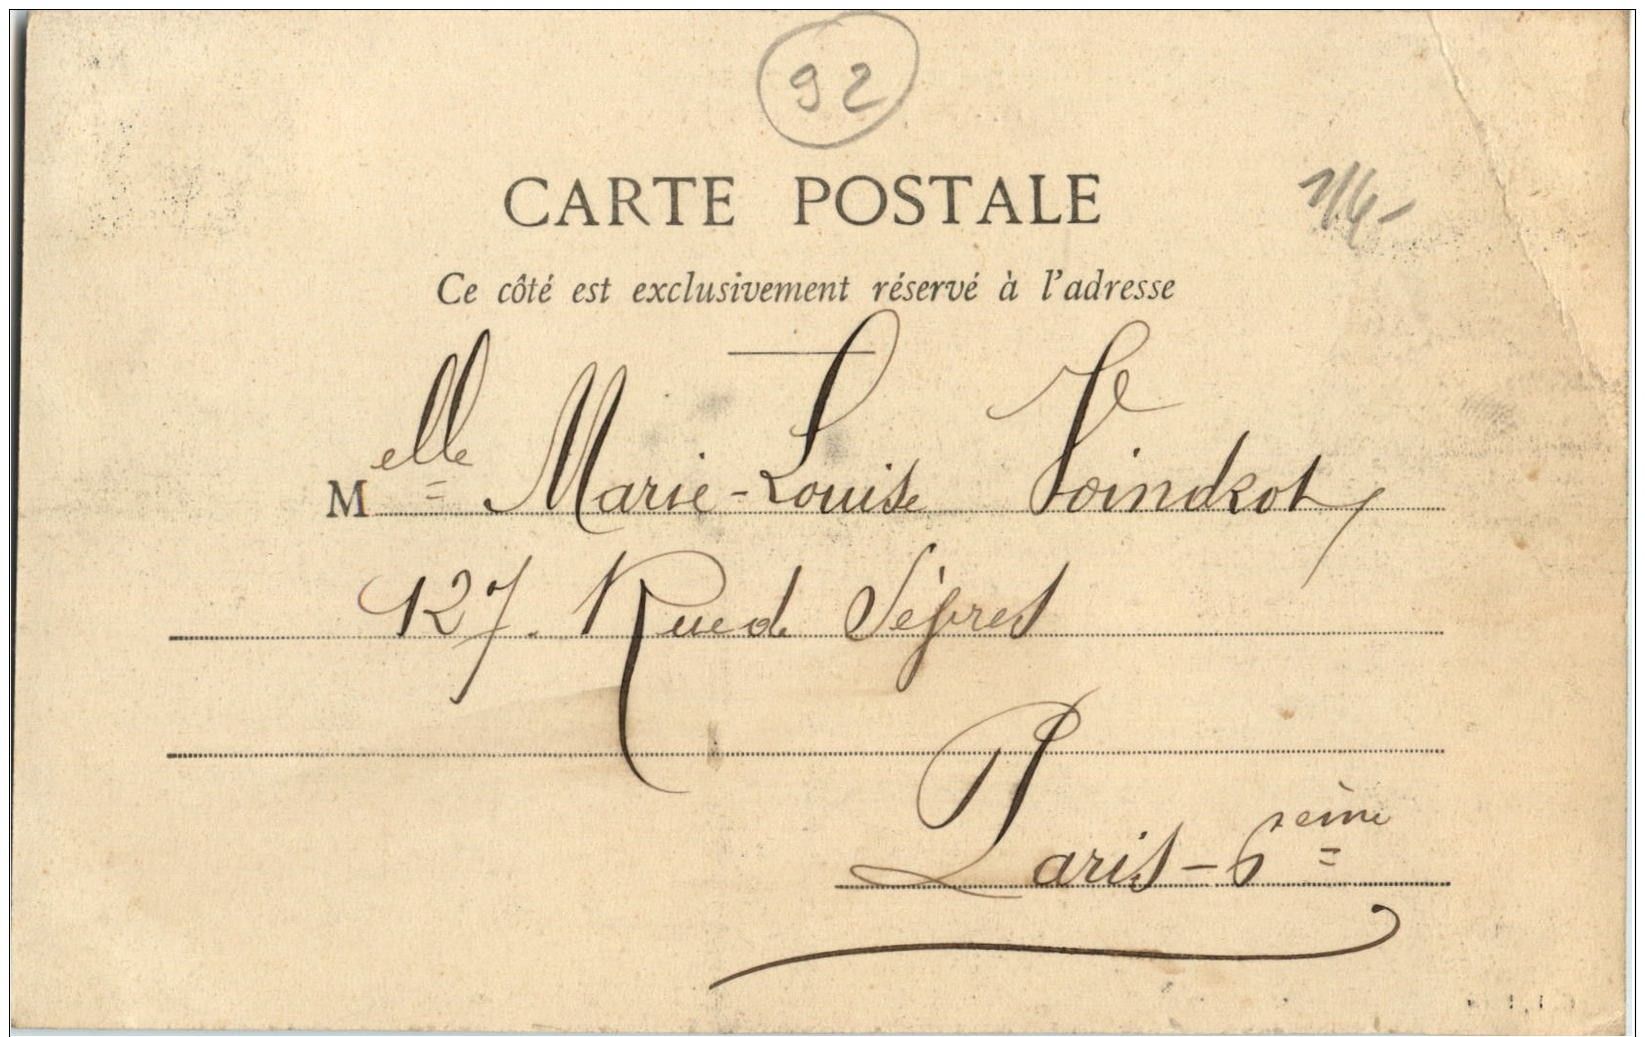 92
CARTE POSTALE
Ce côté est exclusivement réservé à l'adresse
Melle Marie-Louise
127. Rue de Sèvres
Paris-6ème